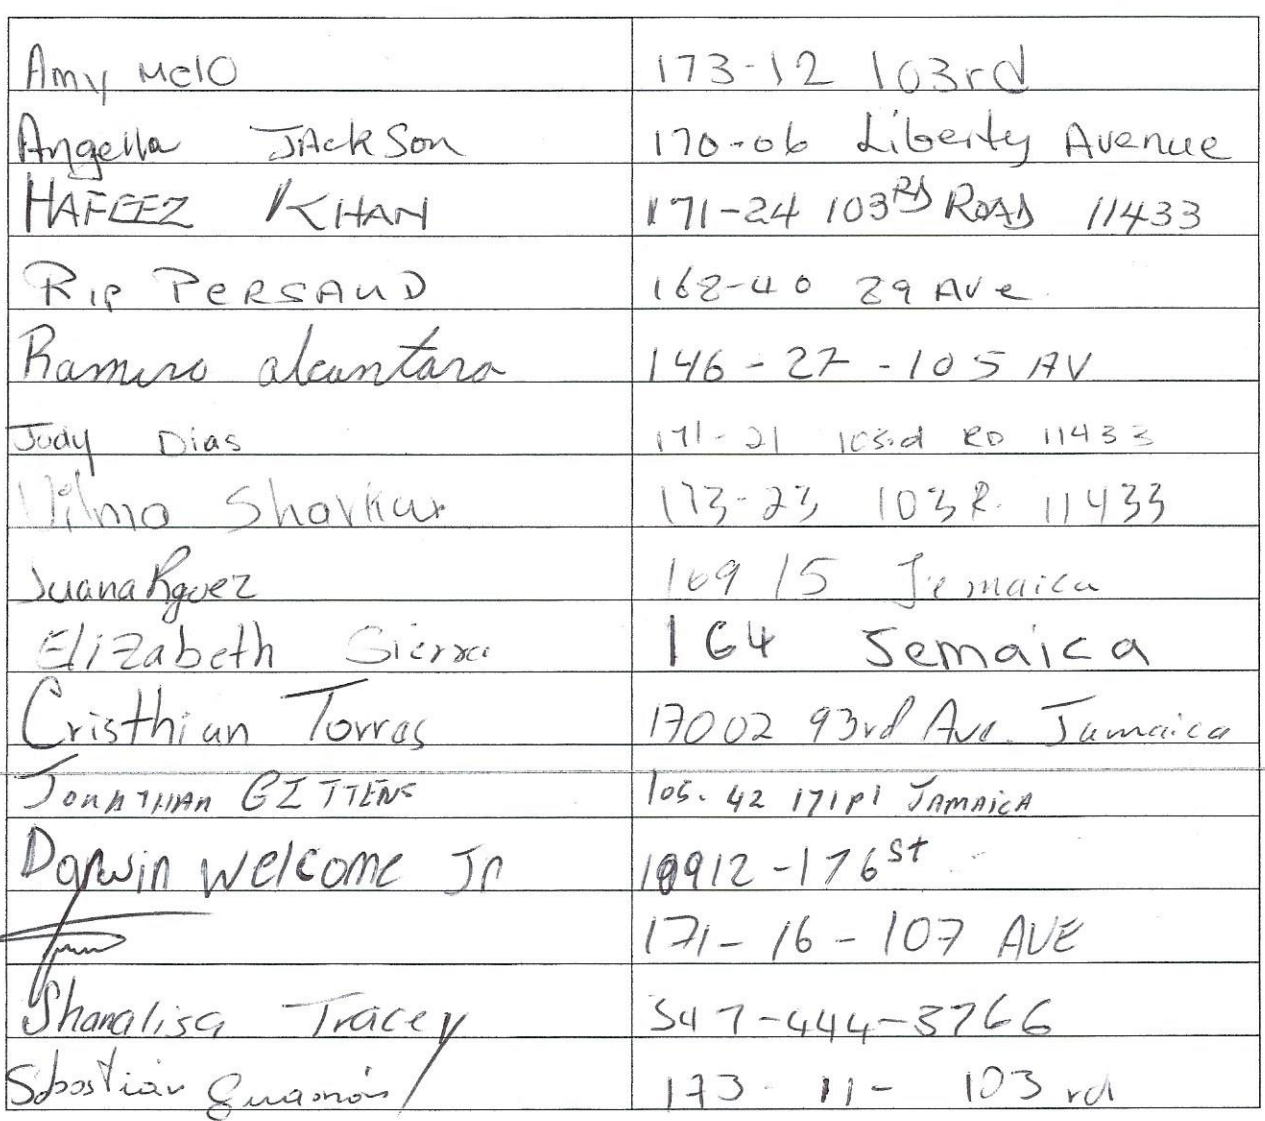 Amy Melo 173-12 103rd
Angella JAckSon 170-06 Liberty Avenue
HAFEEZ KHAN 171-24 103RD ROAD 11433
Rip PERSAUD 168-40 89 Ave
Ramiro alcantara 146-27-105 AV
Judy Dias 171-21 103rd RD 11433
Vilma Shavkur 173-23 103 R. 11433
Juana Rguez 169 15 Jemaica
Elizabeth Sierra 164 Jemaica
Cristhian Torres 17002 93rd Ave. Jamaica
JONATHAN GITTENS 105-42 171 Pl JAMAICA
Darwin Welcome Jr 10912-176st
171-16-107 AVE
Shanalisa Tracey 347-444-3766
Sebastián Guamán 173-11-103rd